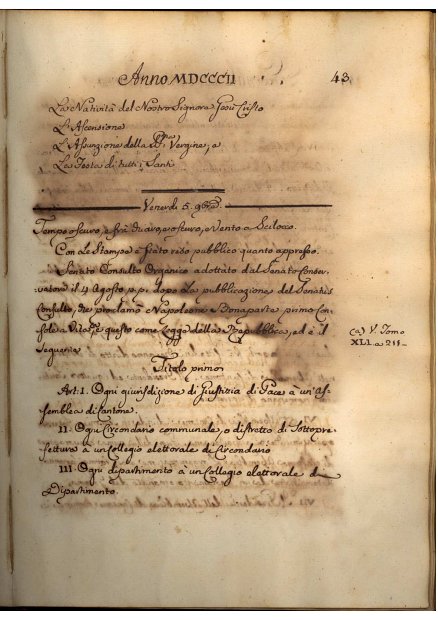 Anno MDCCCII
43
La Natività del Nostro Signore Gesù Cristo
L'Ascensione
L'Assunzione della Bma Vergine, e
La Festa di tutti i Santi
Venerdì 5. 9bre
Tempo oscuro, e frà due aer oscuro, e Vento a Scilocco
Con Le Stampe è stato reso pubblico quanto appresso.
Senato Consulto Organico adottato dal Senato Conser-
vatore il 4 Agosto p. p. dopo La pubblicazione del Senatus
Consulto, che proclama Napoleone Bonaparte primo Con-
sole a Vita, questo come Legge della Repubblica, ed è il
seguente
(a) V. Tomo
XLI. a 211-
Titolo primo
Art: I. Ogni giurisdizione di Giustizia di Pace à un'As-
semblea di Cantone.
II. Ogni Circondario communale, o distretto di Sottopre-
fettura à un Collegio elettorale di Circondario
III Ogni dipartimento à un Collegio elettorale di
Dipartimento.